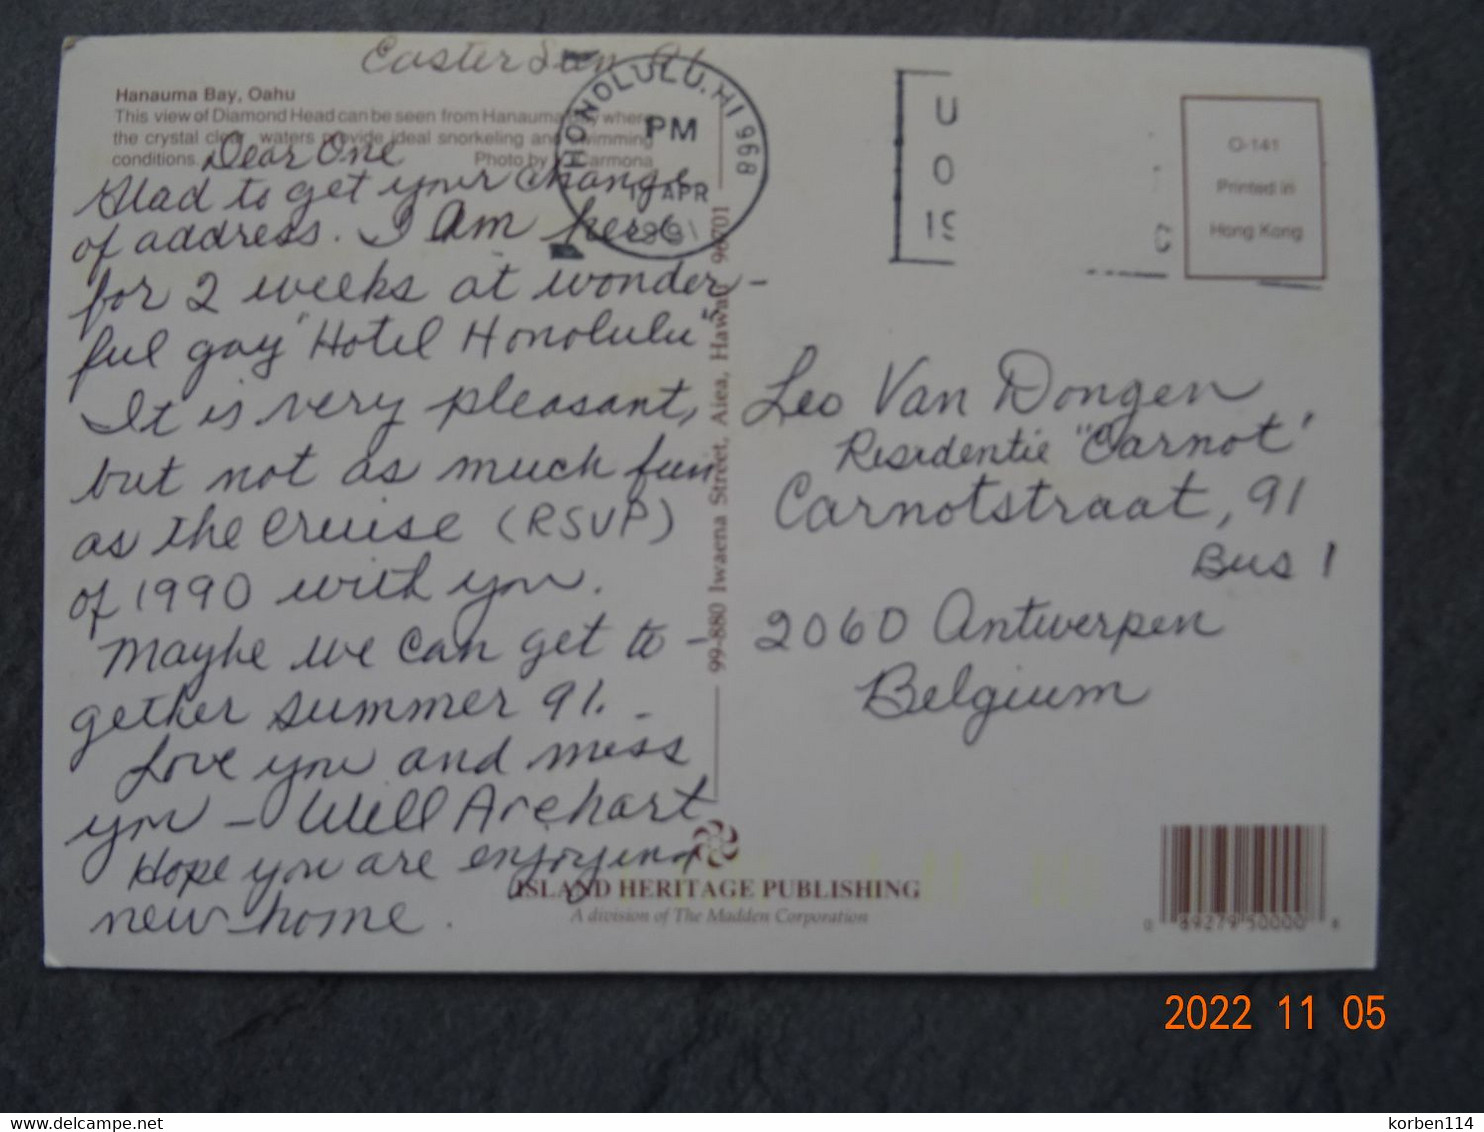 Easter Sun 91
Hanauma Bay, Oahu
This view of Diamond Head can be seen from Hanauma Bay where
the crystal clear waters provide ideal snorkeling and swimming
conditions. Photo by Carmona
Dear One
Glad to get your change
of address. I am here
for 2 weeks at wonder-
ful gay "Hotel Honolulu".
It is very pleasant,
but not as much fun
as the cruise (RSVP)
of 1990 with you.
Maybe we can get to-
gether summer 91. -
Love you and miss
you - Will Arehart
Hope you are enjoying
new home.
HONOLULU, HI 968
PM
APR
1991
99-880 Iwaena Street, Aiea, Hawaii 96701
U
O
19
O-141
Printed in
Hong Kong
Leo Van Dongen
Residentie "Carnot"
Carnotstraat, 91
Bus 1
2060 Antwerpen
Belgium
ISLAND HERITAGE PUBLISHING
A division of The Madden Corporation
0 89279 50000 8
2022 11 05
korben114